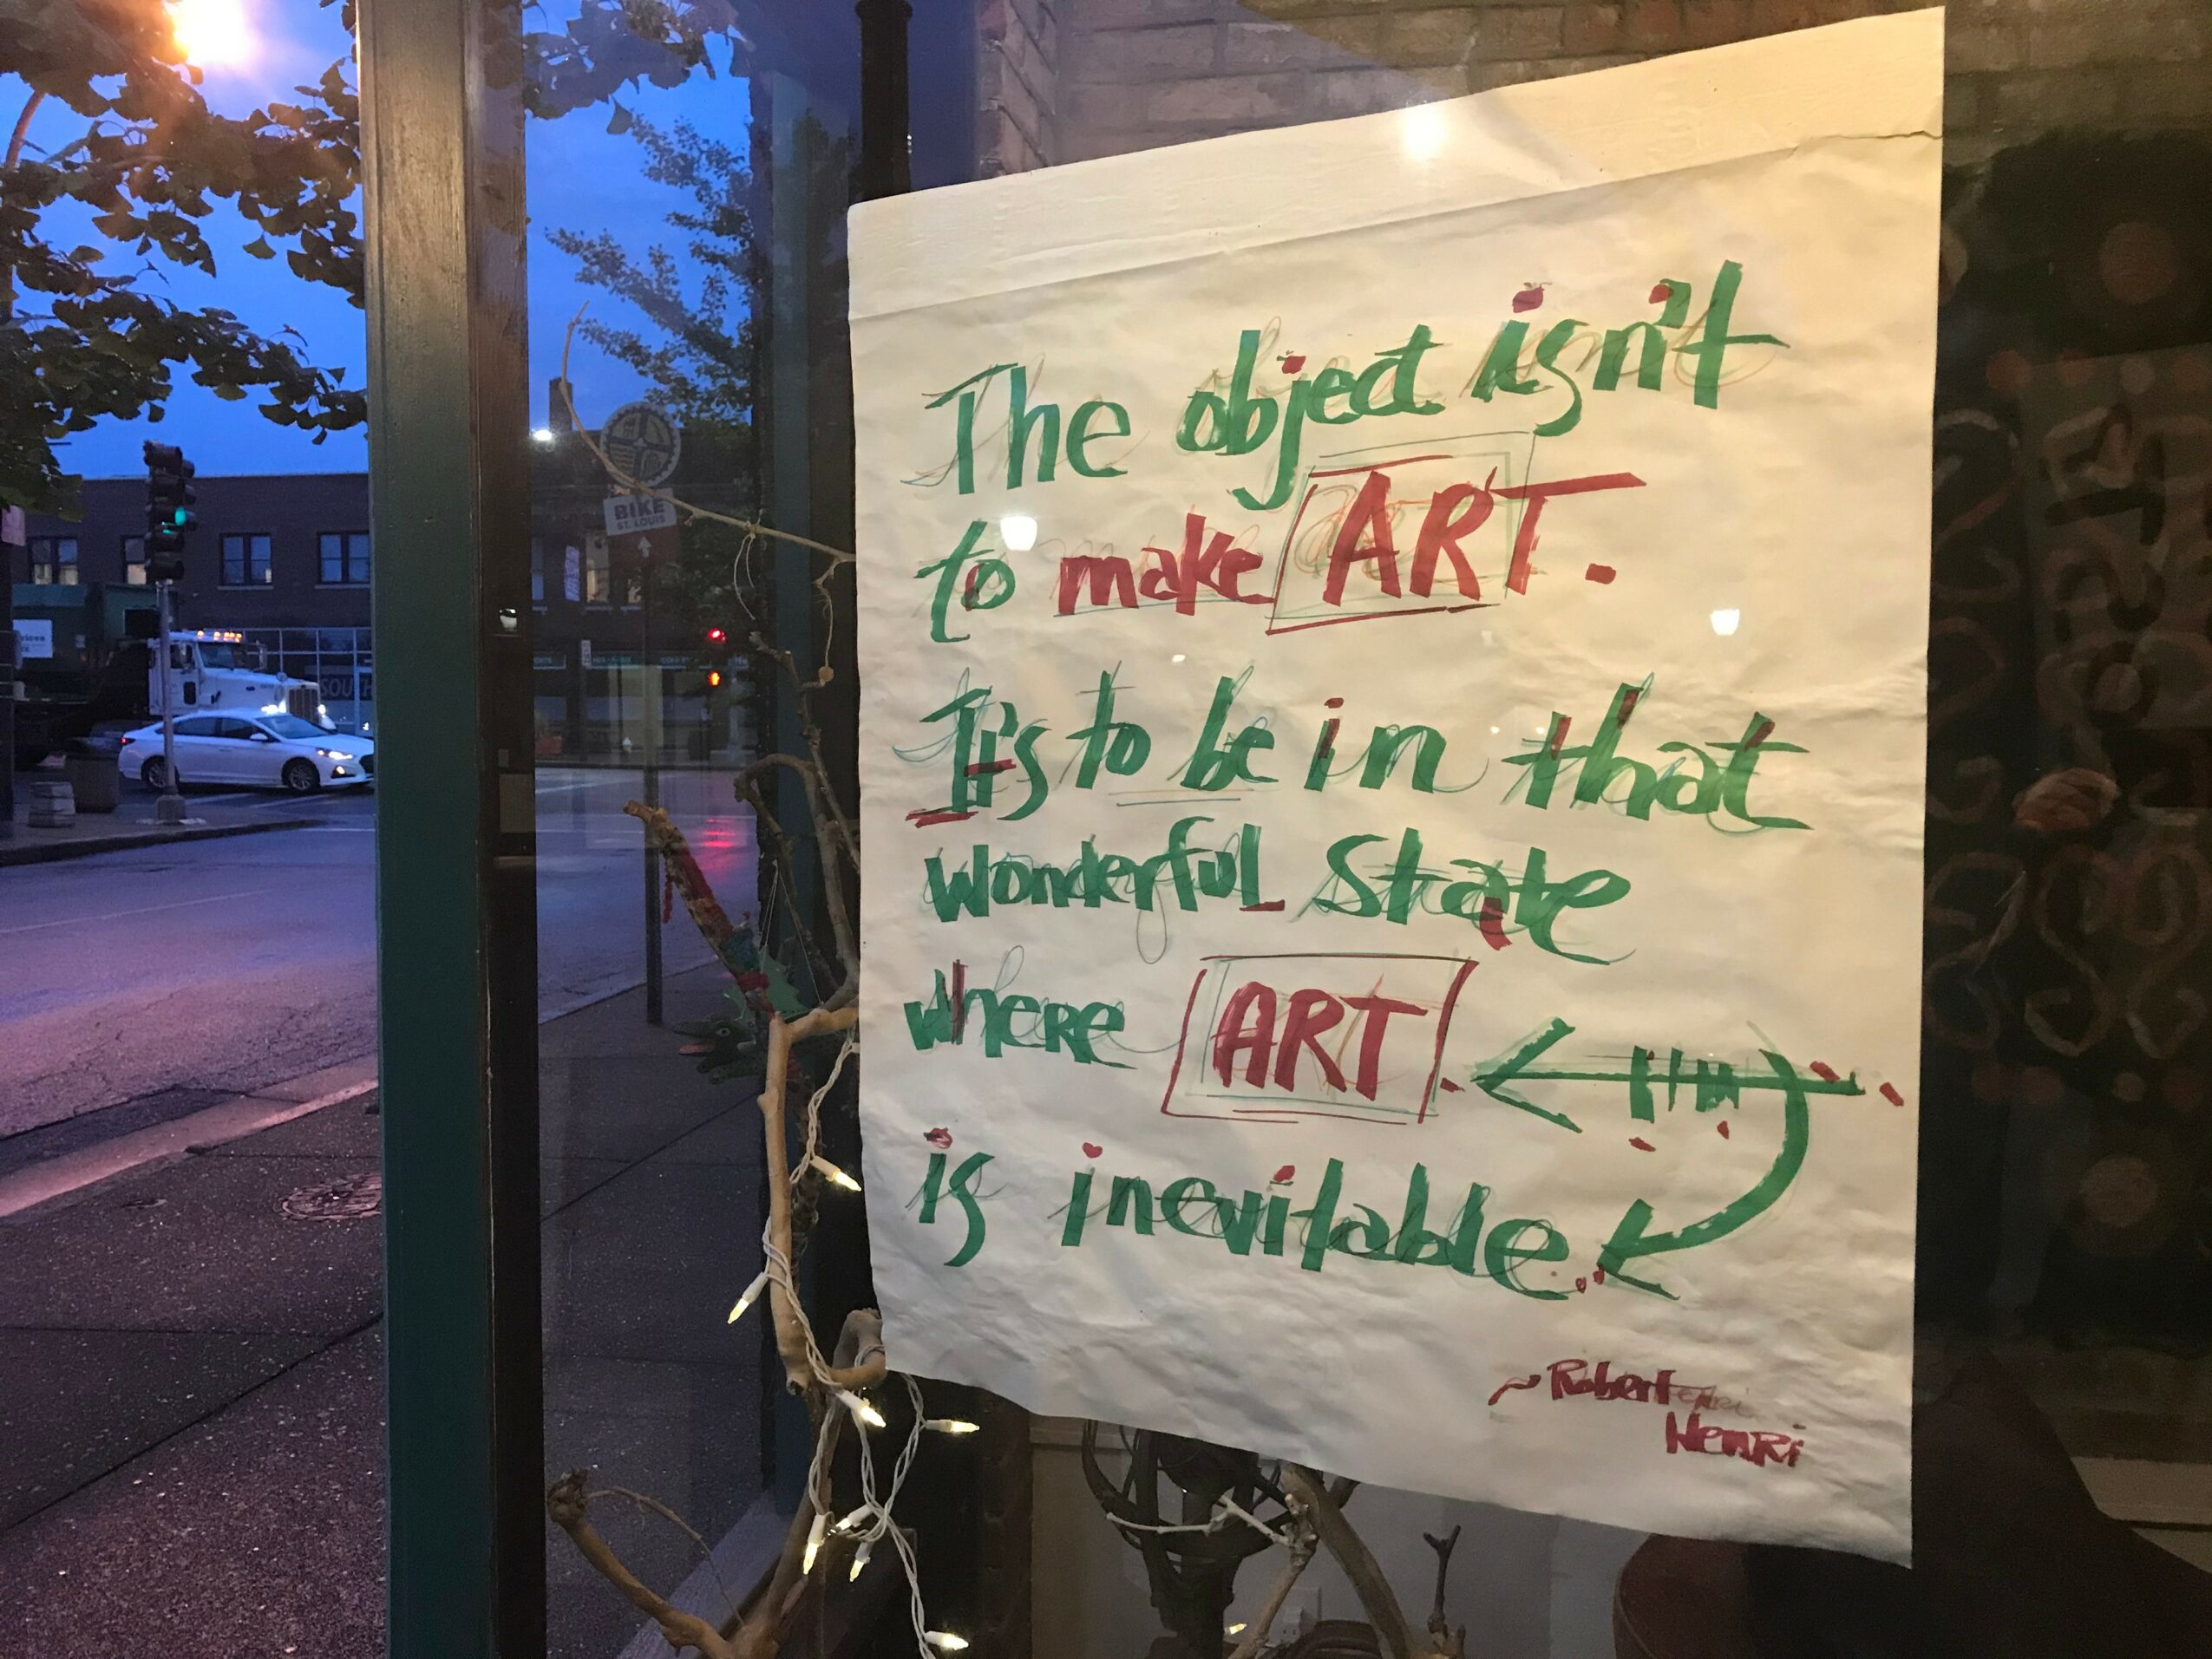 The object isn't
to make ART.
It's to be in that
wonderful State
where ART.
is inevitable.
~Robert
Henri
BIKE
ST. LOUIS
SOUTH